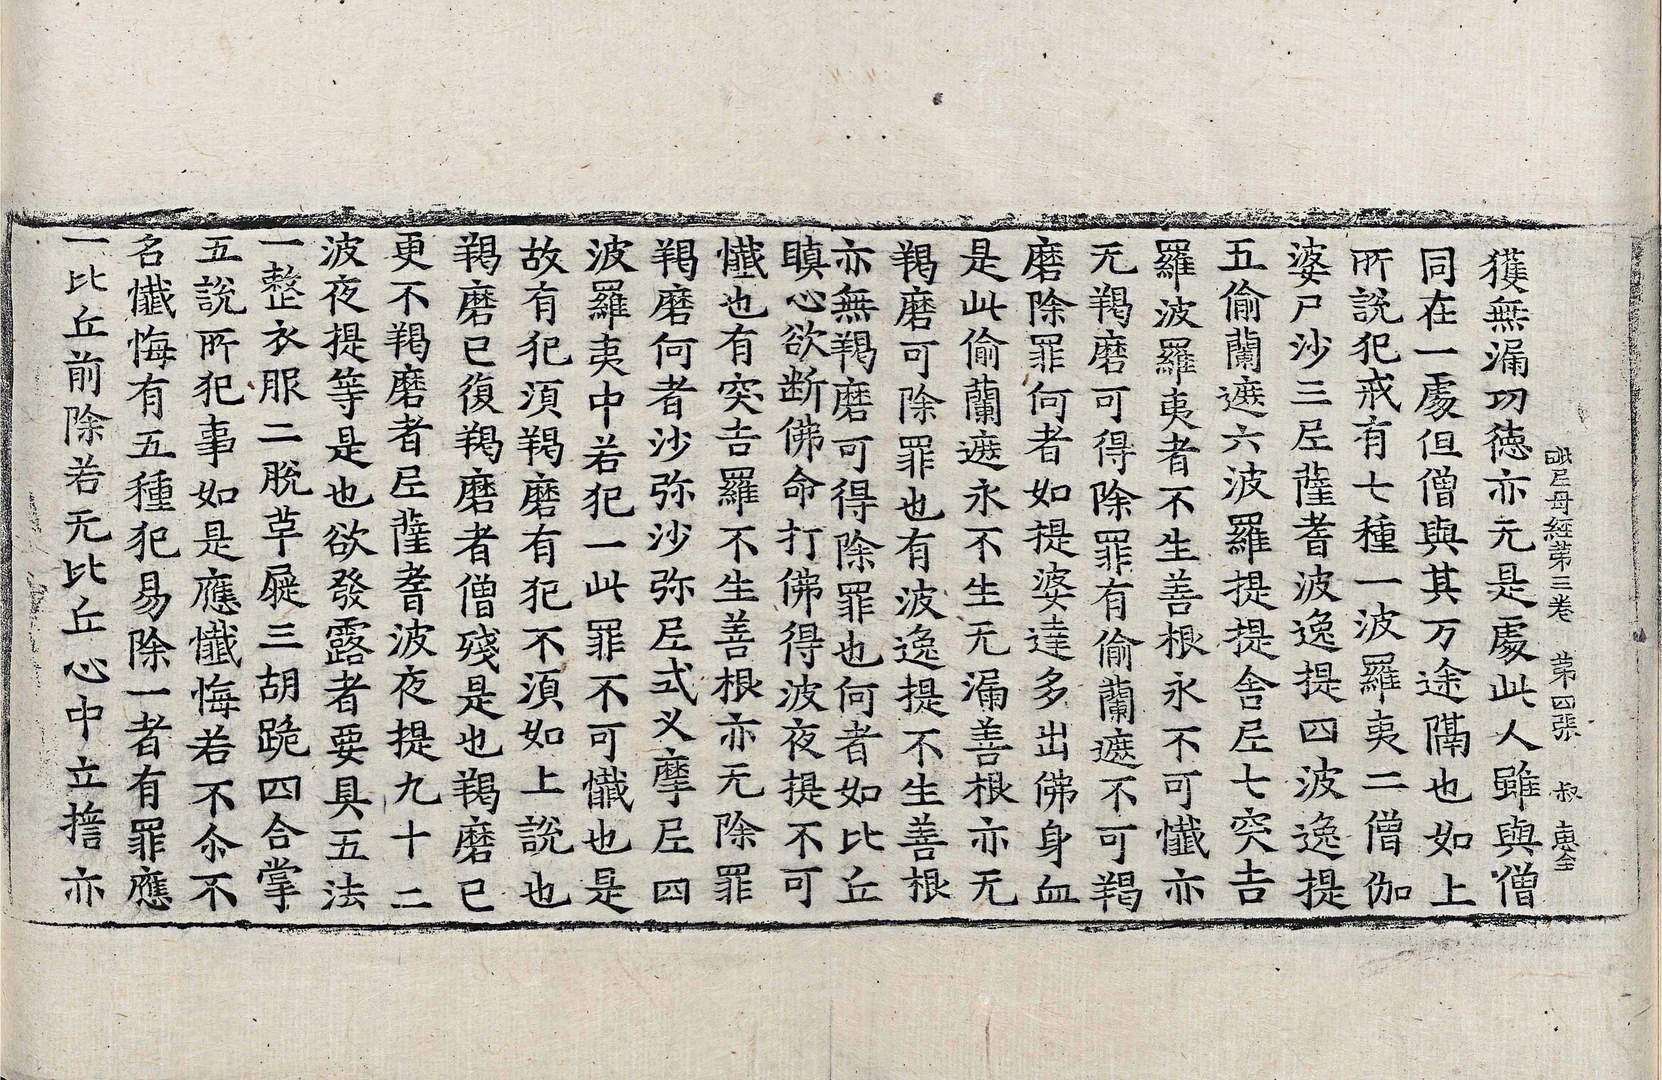 毗尼母經第三卷　第四張　叔　惠全
獲無漏功德亦无是處此人雖與僧
同在一處但僧與其万途隔也如上
所說犯戒有七種一波羅夷二僧伽
婆尸沙三尼薩耆波逸提四波逸提
五偷蘭遮六波羅提提舍尼七突吉
羅波羅夷者不生善根永不可懺亦
无羯磨可得除罪有偷蘭遮不可羯
磨除罪何者如提婆達多出佛身血
是此偷蘭遮永不生无漏善根亦无
羯磨可除罪也有波逸提不生善根
亦無羯磨可得除罪也何者如比丘
瞋心欲断佛命打佛得波夜提不可
懺也有突吉羅不生善根亦无除罪
羯磨何者沙弥沙弥尼式叉摩尼四
波羅夷中若犯一此罪不可懺也是
故有犯湏羯磨有犯不湏如上說也
羯磨已復羯磨者僧殘是也羯磨已
更不羯磨者尼薩耆波夜提九十二
波夜提等是也欲發露者要具五法
一整衣服二脫革屣三胡跪四合掌
五說所犯事如是應懺悔若不尒不
名懺悔有五種犯易除一者有罪應
一比丘前除若无比丘心中立擔亦